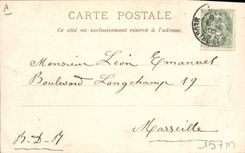 A
CARTE POSTALE
Ce côté est exclusivement réservé à l'adresse.
Monsieur Léon Emanuel
Boulevard Longchamp 19
Marseille
B-D-R
157M